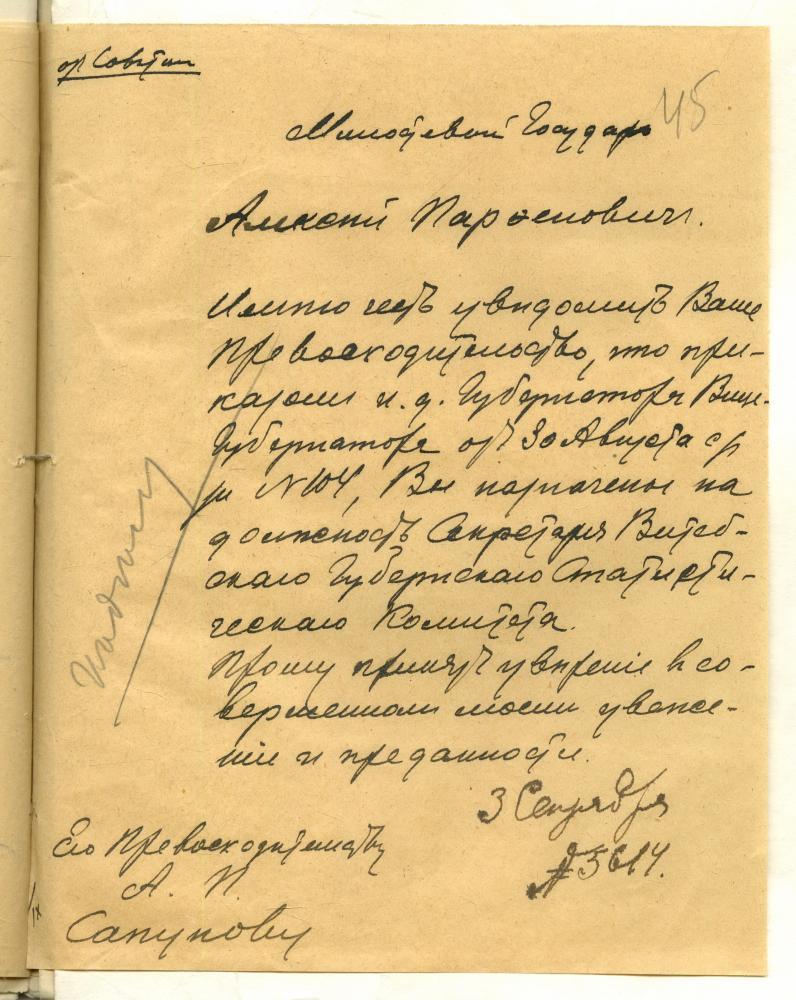 от Советни
45
Милостивый Государь
Алексей Парѳеновичъ.
Имѣю честь увѣдомить Ваше
Превосходительство, что при-
казомъ и. д. Губернатора Вице-
Губернатора отъ 30 Августа с/г
за № 104, Вы назначены на
должность Секретаря Витеб-
скаго Губернскаго Статисти-
ческаго Комитета.
Прошу принять увѣреніе въ со-
вершенномъ моемъ уваже-
ніи и преданности.
3 Сентября
№ 5614.
Его Превосходительству
А. П.
Сапунову